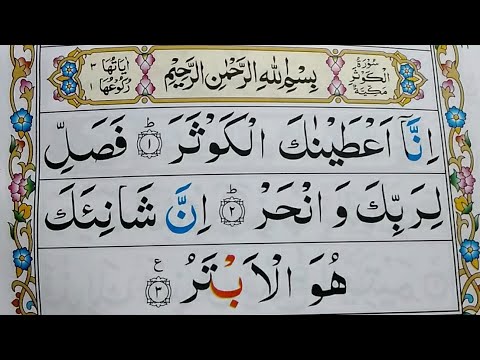 سُوْرَةُ الْكَوْثَرِ مَكِّيَّةٌ
بِسْمِ اللهِ الرَّحْمٰنِ الرَّحِيْمِ
اٰيَاتُهَا ٣ رُكُوْعُهَا ١
اِنَّاۤ اَعْطَيْنٰكَ الْكَوْثَرَ ؕ﴿١﴾ فَصَلِّ
لِرَبِّكَ وَ انْحَرْ ؕ﴿٢﴾ اِنَّ شَانِئَكَ
هُوَ الْاَبْتَرُ ﴿٣﴾ ع